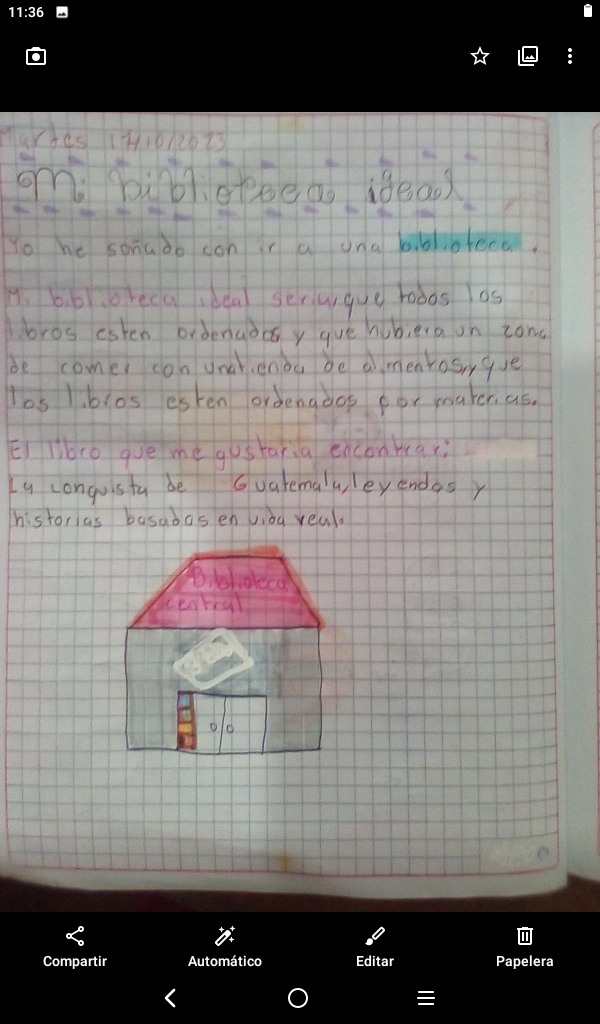 11:36
Martes 17/10/2023
Mi biblioteca ideal
Yo he soñado con ir a una biblioteca.
Mi biblioteca ideal seria, que todos los
libros esten ordenados y que hubiera un zona
de comer con una tienda de alimentos, y que
los libros esten ordenados por materias.
El libro que me gustaria encontrar:
La conquista de Guatemala, leyendas y
historias basadas en vida real.
Biblioteca
central
Compartir
Automático
Editar
Papelera